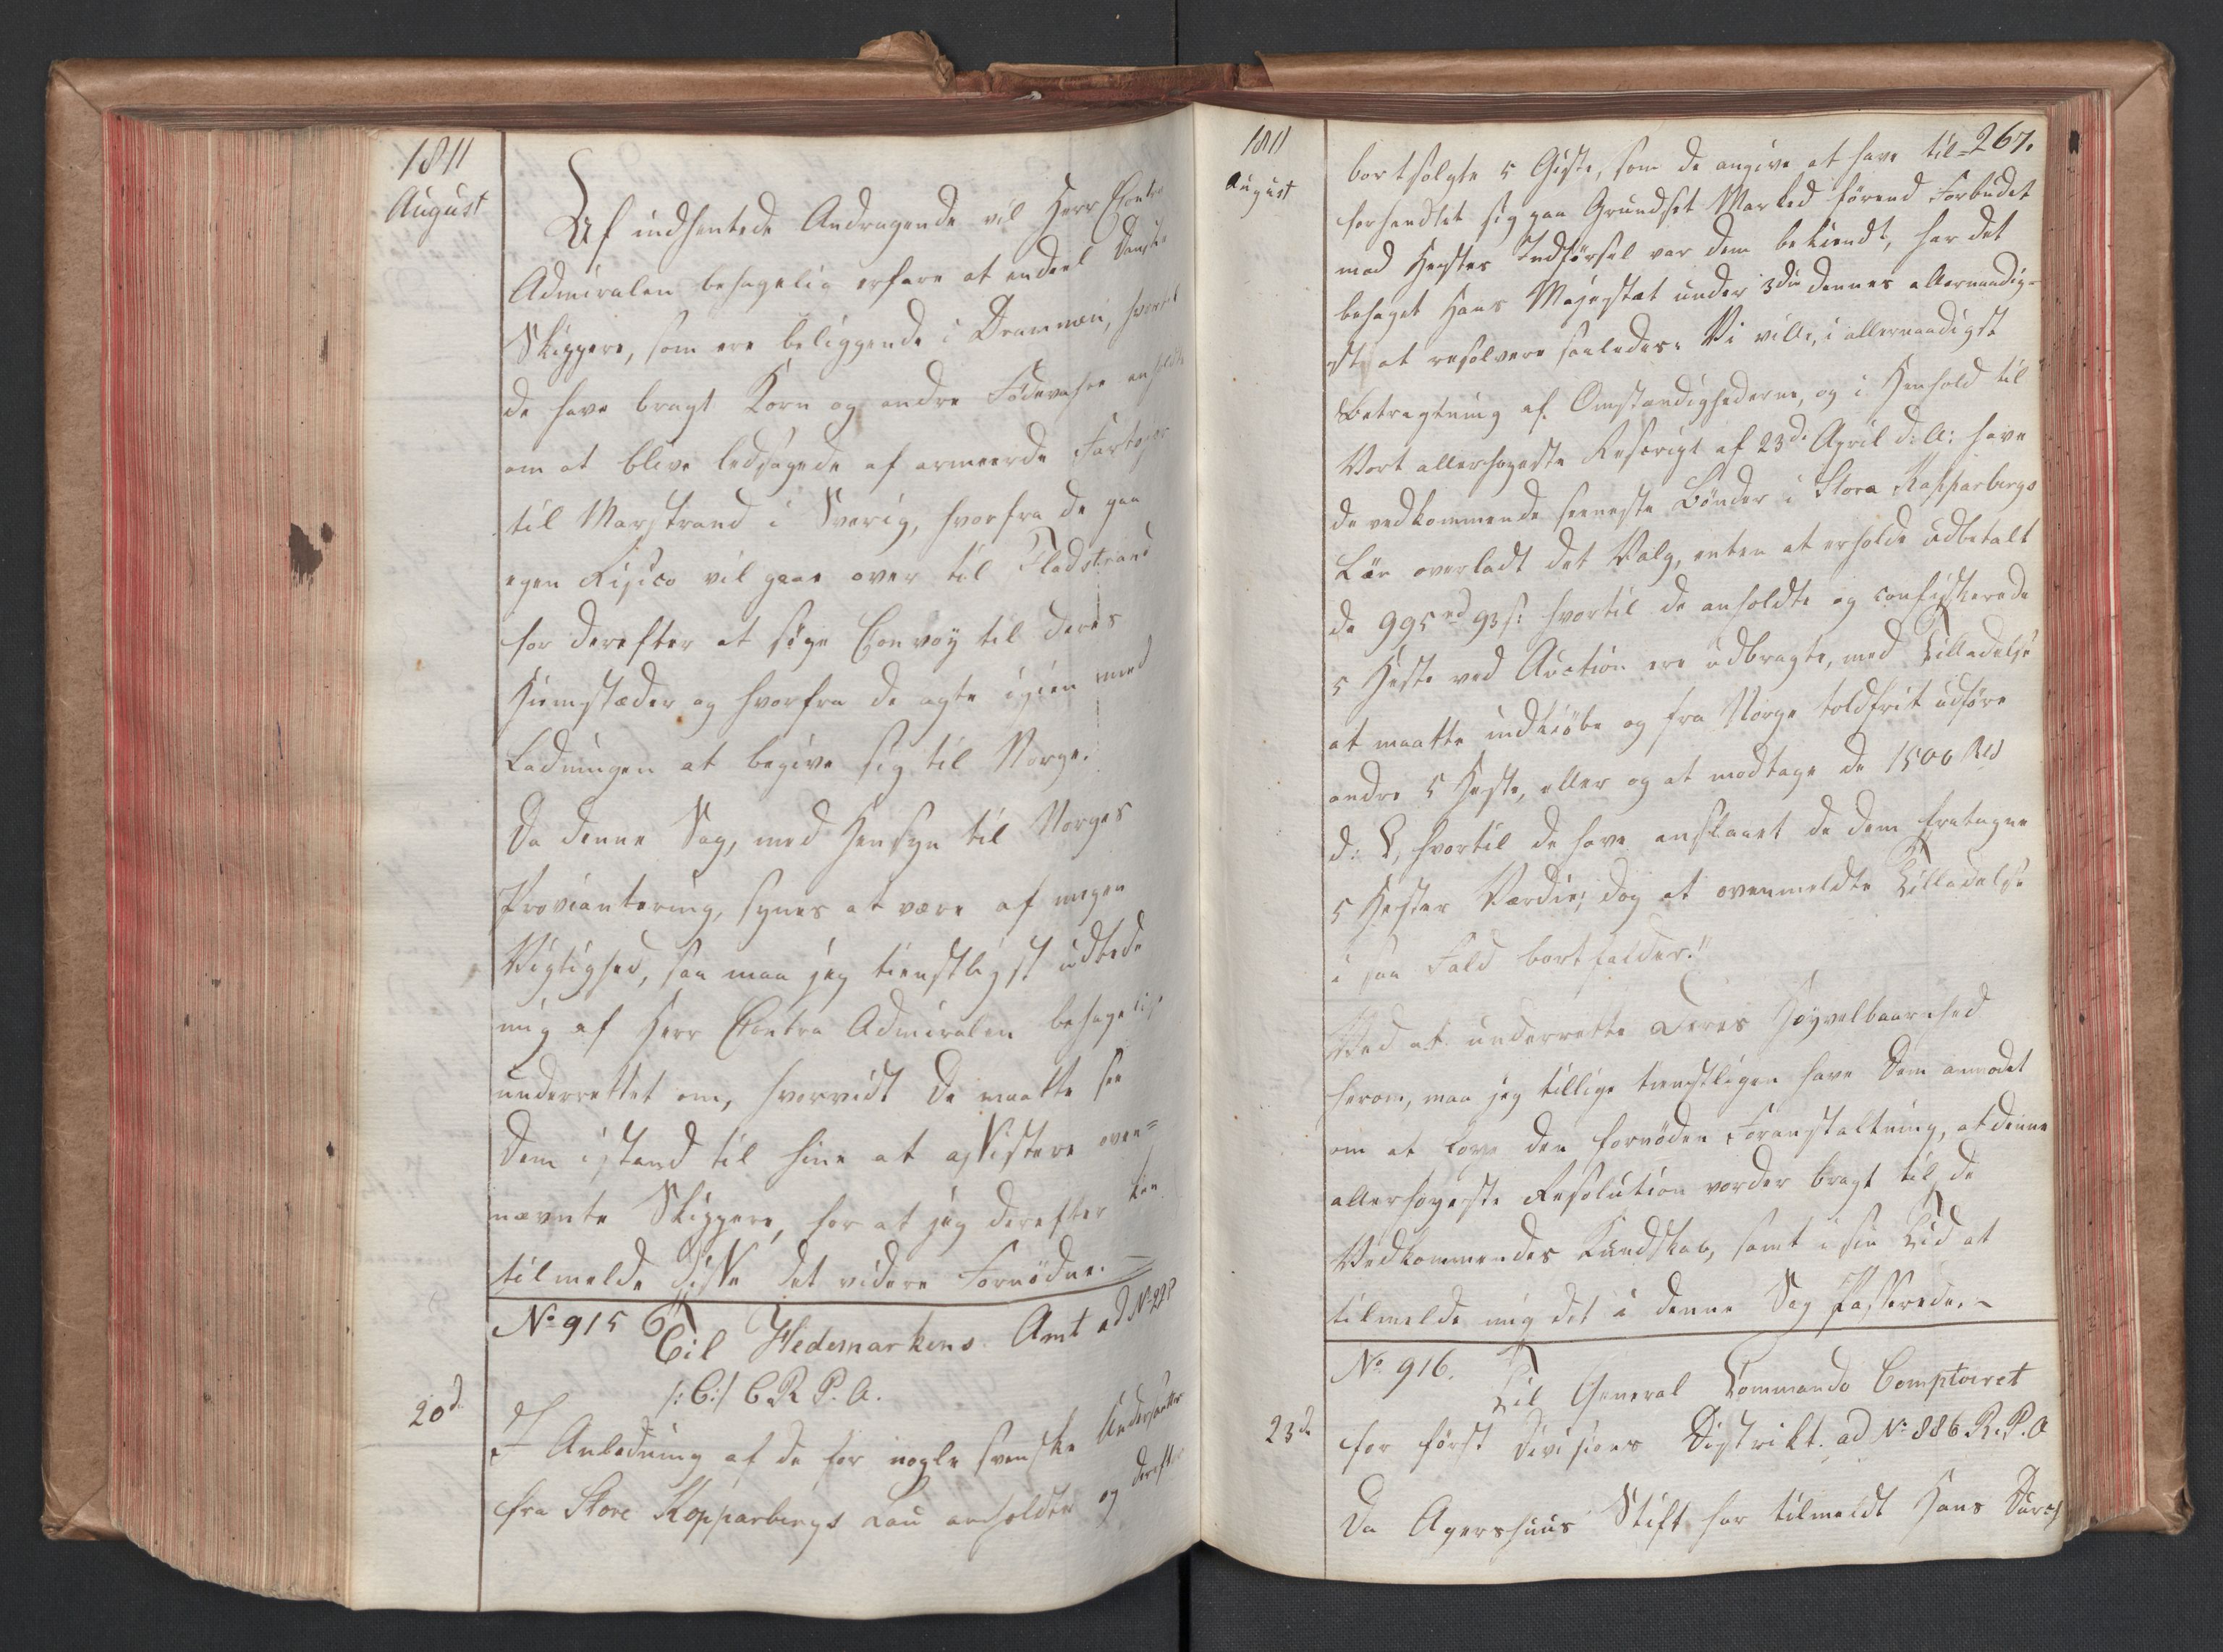 1811
August
Af indhentede Andragende vil Herr Contra
Admiralen behagelig erfare at endeel danske
Skippere, som ere beliggende i Drammen, hvortil
de have bragt Korn og andre Fødevahre anholde
om at blive ledsagede af armeerde Fartøyer
til Marstrand i Sverig, hvorfra de paa
egen Risico vil gaae over til Fladstrand
for derefter at søge Convoÿ til deres
Hiemstæder og hvorfra de agte igien med
Ladningen at begive sig til Norge.
Da denne Sag, med Hensyn til Norges
Proviantering, synes at være af megen
Vigtighed, saa maa jeg tienstligst udbede
mig af Herr Contra Admiralen behagelig
underrettet om, hvorvidt De maatte see
Dem istand til hine at assistere oven=
nævnte Skippere, for at jeg derefter kan
tilmelde disse det videre Fornödne. =
No 915 Til Hedemarkens Amt ad No 225
/: C:/ C R P. A.
20d
I Anledning af de for nogle svenske Undersaatter
fra Store Kopparbergs Län anholdte og derefter
1811
August
267.
bortsolgte 5 Heste, som de angive at have til=
forhandlet sig paa Grundset Marked förend Forbudet
mod Hestes Indförsel var dem bekiendt, har det
behaget Hans Majestæt under 3die dennes allernaadig=
st at resolvere saaledes: Vi ville, i allernaadigst
Betragtning af Omstændighederne, og i Henhold til
Vort allerhøyeste Rescript af 23de April d: A: have
de vedkommende svenske Bönder i Stora Kopparbergs
Län overladt det Valg, enten at erholde udbetalt
de 995 rd 93 s: hvortil de anholdte og confiskerede
5 Heste ved Auction ere udbragte, med Tilladelse
at maatte indkiöbe og fra Norge toldfrit udföre
andre 5 Heste, eller og at modtage de 1500 Rd
d: C, hvortil de have anslaaet de dem fratagne
5 Hestes Værdie; dog at ovenmeldte Tilladelse
i saa Fald bortfalder."
Ved at underrette Deres Høyvelbaarenhed
herom, maa jeg tillige tienstligen have Dem anmodet
om at føye den fornödne Foranstaltning, at denne
allerhøyeste Resolution vorder bragt til de
Vedkommendes Kundskab, samt i sin Tid at
tilmelde mig det i denne Sag Passerede. -
No 916.
Til General Commando Comptoiret
23de
for först Divisions Distrikt. ad No 886 R. P. A
Da Agershuus Stift har tilmeldt Hans Durch